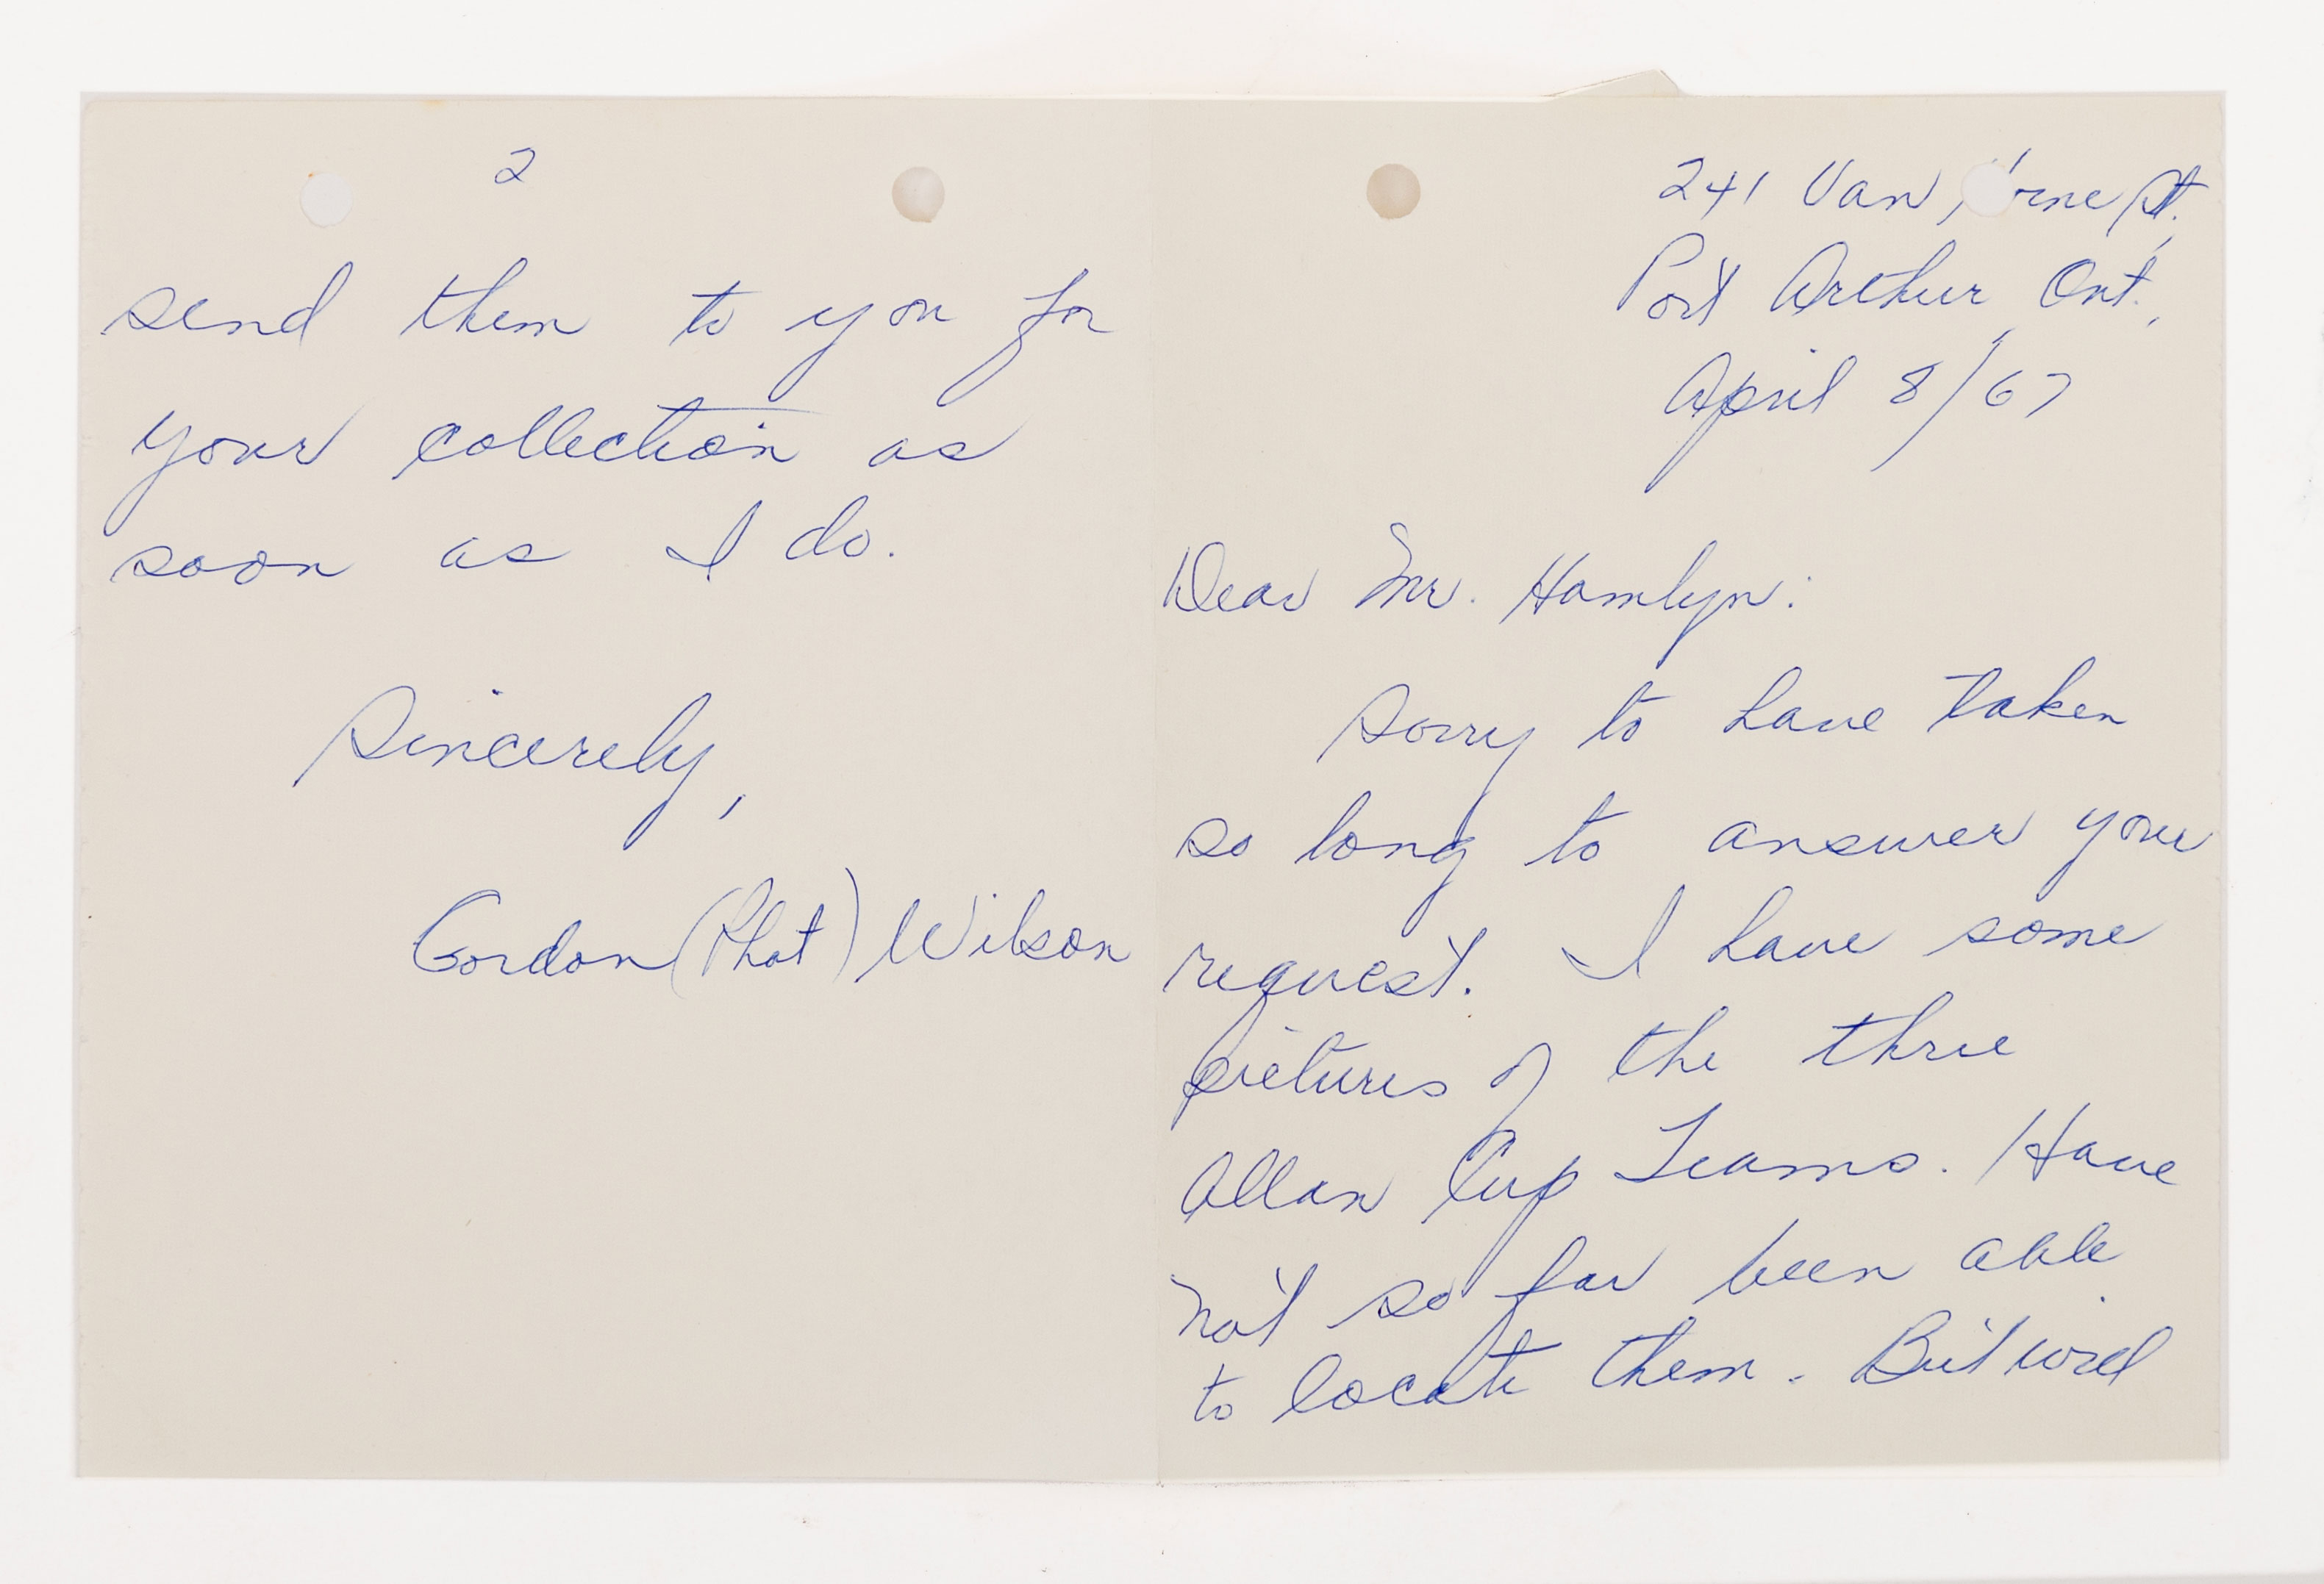 241 Van rne St.,
Port Arthur, Ont.,
April 8/67
Dear Mr. Hamlyn:
Sorry to have taken
so long to answer your
request. I have some
pictures of the three
Allan Cup Teams. Have
not so far been able
to locate them. But will
2
send them to you for
your collection as
soon as I do.
Sincerely,
Gordon (Phat) Wilson